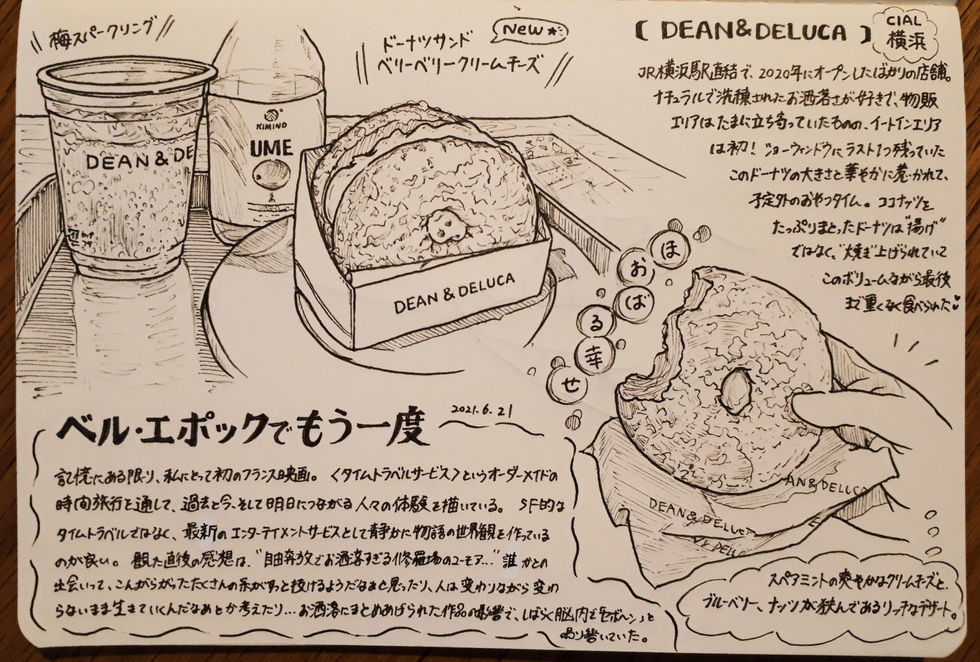 梅スパークリング
DEAN & DE
KIMINO
UME
New
ドーナツサンド
ベリーベリークリームチーズ
DEAN & DELUCA
【DEAN&DELUCA】
CIAL
横浜
JR横浜駅直結で、2020年にオープンしたばかりの店舗。
ナチュラルで洗練されたお洒落さが好きで、物販
エリアはたまに立ち寄っていたものの、イートインエリア
は初！ショーウィンドウにラスト1つ残っていた
このドーナツの大きさと華やかに惹かれて、
予定外のおやつタイム。ココナッツを
たっぷりまとったドーナツは"揚げ"
ではなく、"焼き"上げられていて
このボリュームながら最後
まで重くなく食べられた
ほおばる幸せ
DEAN & DELUCA
AN & DELUCA
DELU
スペアミントの爽やかなクリームチーズと、
ブルーベリー、ナッツが挟んであるリッチなデザート。
ベル・エポックでもう一度
2021.6.21
記憶にある限り、私にとって初のフランス映画。〈タイムトラベルサービス〉というオーダーメイドの
時間旅行を通して、過去と今、そして明日につながる人々の体験を描いている。SF的な
タイムトラベルではなく、最新のエンターテイメントサービスとして静かに物語の世界観を作っている
のが良い。観た直後の感想は、"自由奔放でお洒落すぎる修羅場のユーモア…"誰かとの
出会いって、こんがらがったたくさんの糸がすっと抜けるようだなぁと思ったり、人は変わりながら変わ
らないまま生きていくんだなぁとか考えたり…お洒落にまとめあげられた作品の影響で、しばらく脳内で「セボーン」と
鳴り響いていた。